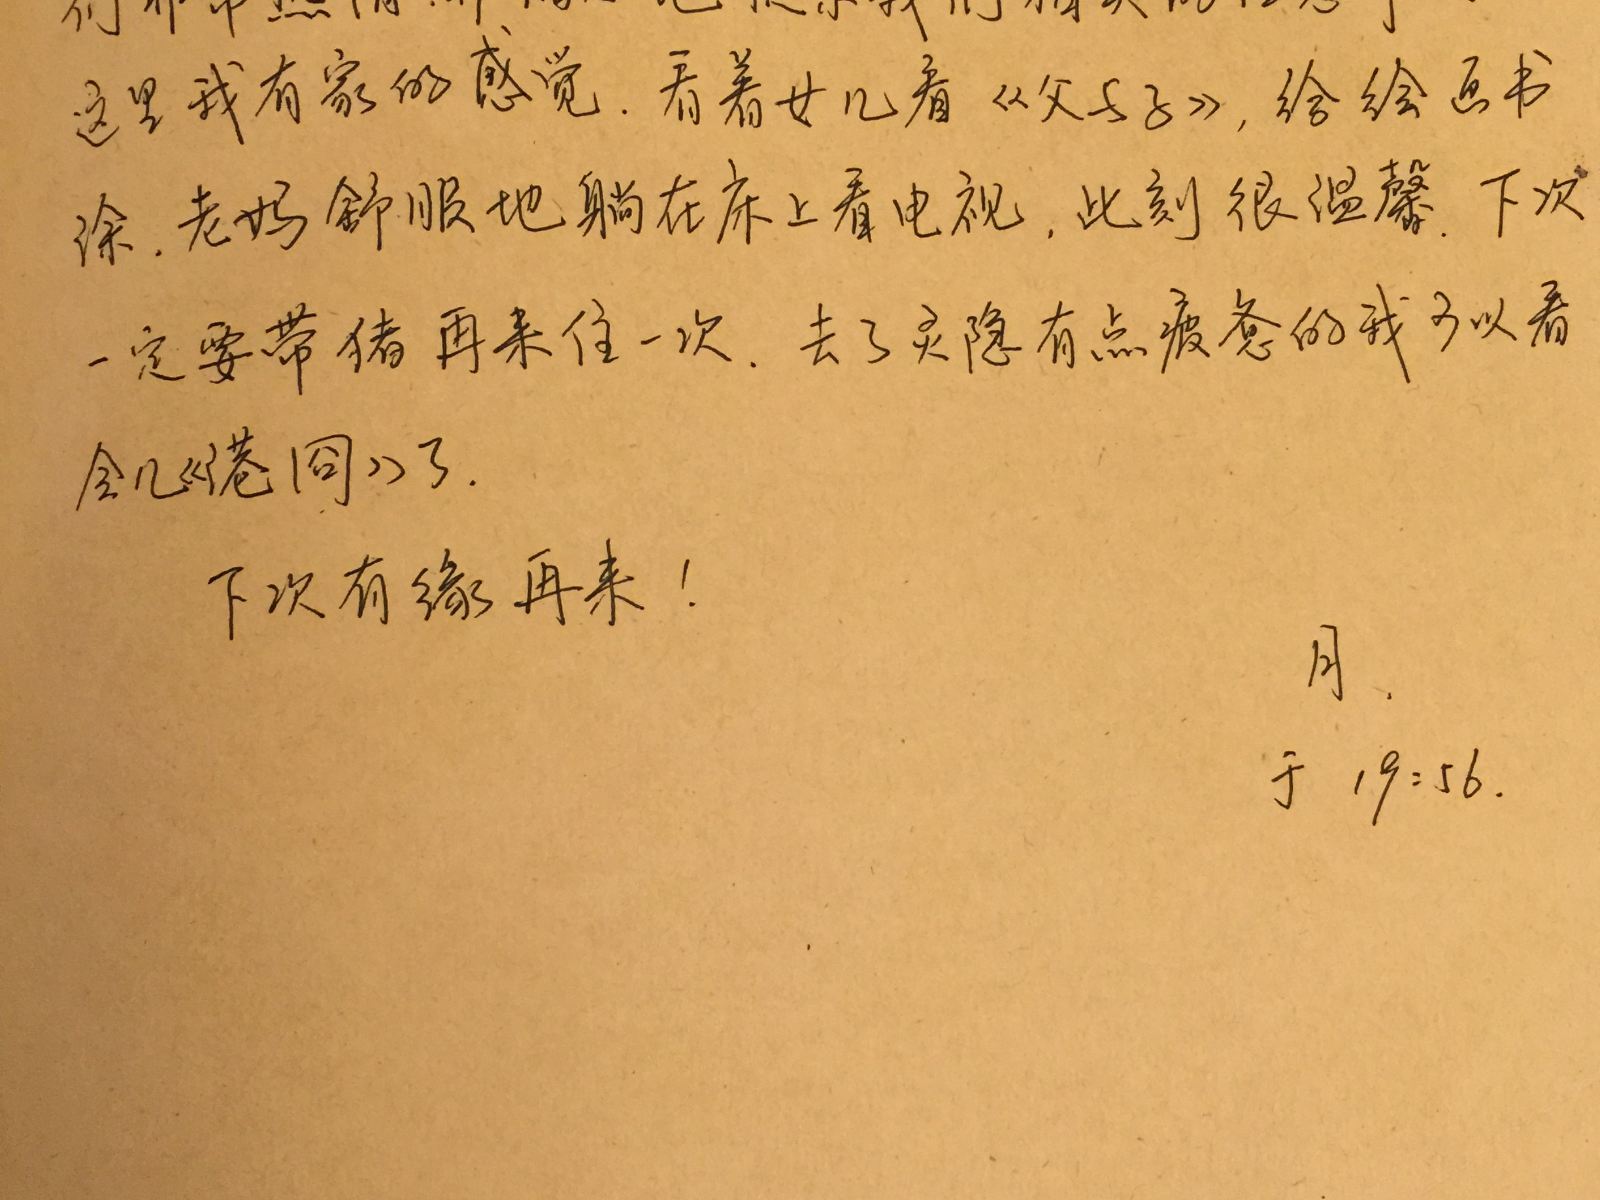 们非常热情
这里我有家的感觉.看着女儿看《父与子》,给绘画书
涂.老妈舒服地躺在床上看电视.此刻很温馨.下次
一定要带猪再来住一次.去了灵隐有点疲惫的我可以看
会儿《港囧》了.
下次有缘再来!
月.
于 19:56.